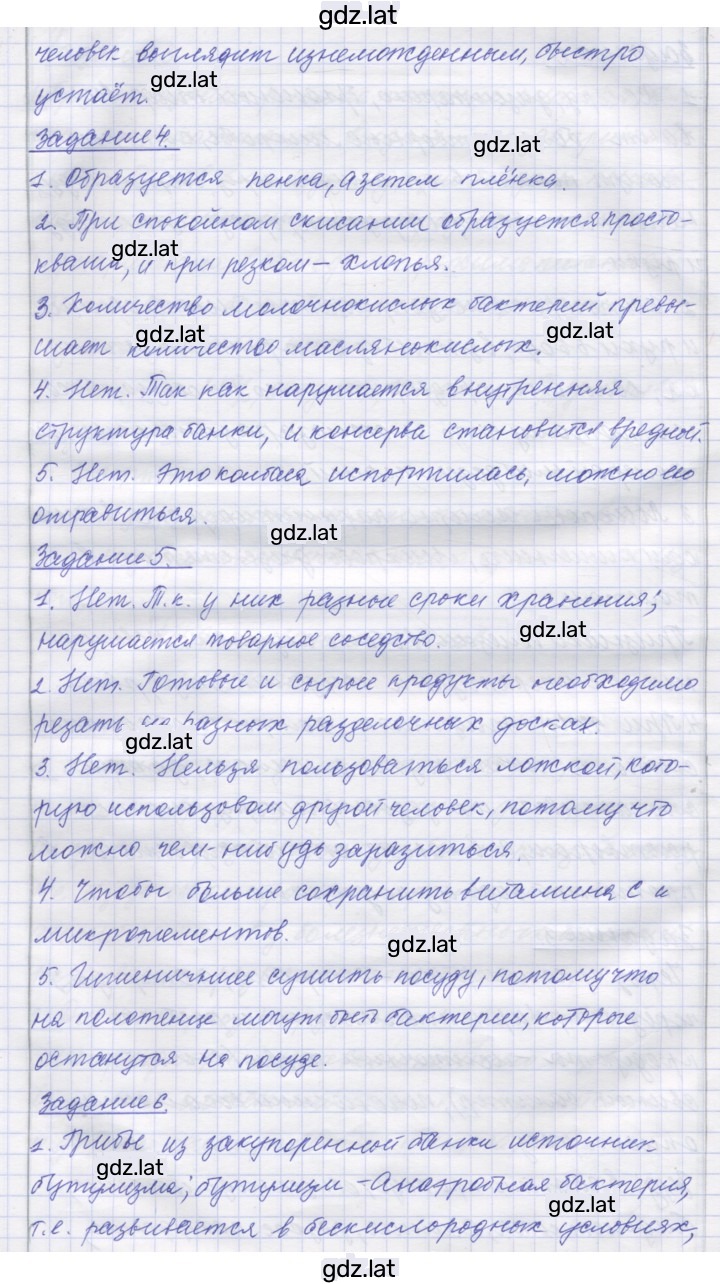 gdz.lat
человек выглядит изнеможденным, быстро
gdz.lat
устаёт.
Задание 4.
gdz.lat
1. Образуется пенка, а зетем плёнка.
2. При спокойном скисании образуется просто-
gdz.lat
кваша, и при резком – хлопья.
3. Количество молочнокислых бактерий превы-
gdz.lat gdz.lat
шает количество маслянокислых.
4. Нет. Так как нарушается внутренняя
структура банки, и консерва становится вредной.
5. Нет. Это колбаса испортилась, можно ею
отравиться.
gdz.lat
Задание 5.
1. Нет. Т.к. у них разные сроки хранения;
gdz.lat
нарушается товарное соседство.
2. Нет. Готовые и сырые продукты необходимо
резать на разных разделочных досках.
gdz.lat
3. Нет. Нельзя пользоваться ложкой, кото-
рую использовал другой человек, потому что
можно чем-нибудь заразиться.
4. Чтобы больше сохранить витамина С и
микроэлементов.
gdz.lat
5. Гигиеничнее сушить посуду, потому что
на полотенце могут быть бактерии, которые
останутся на посуде.
Задание 6.
1. Грибы из закупоренной банки источник
gdz.lat
бутулизма; бутулизм – Анаэробная бактерия,
gdz.lat
т.е. развивается в бескислородных условиях,
gdz.lat